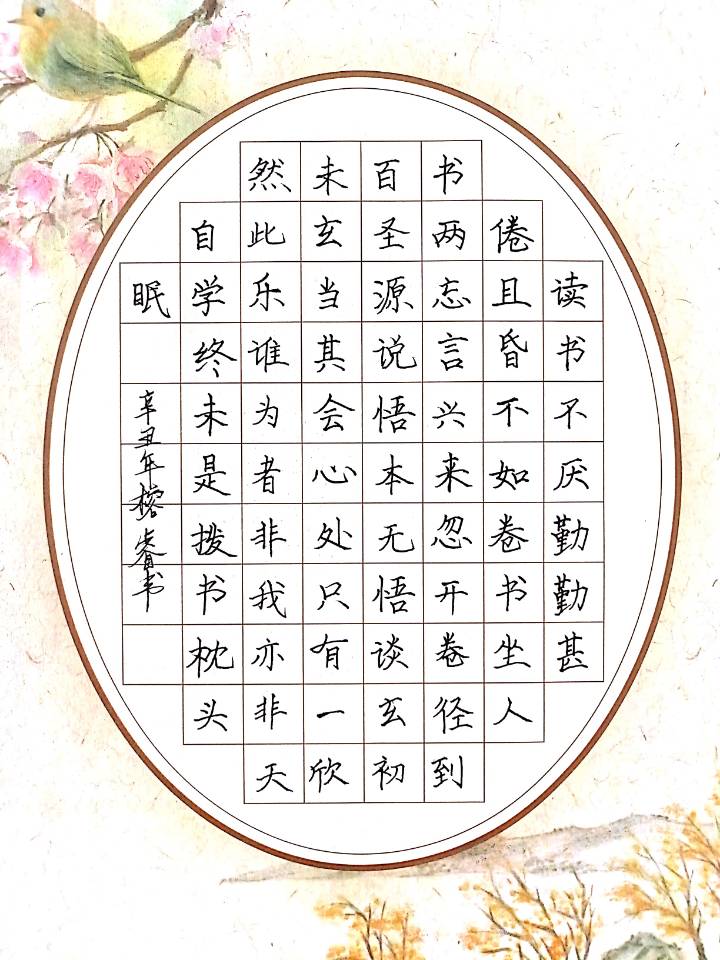 读书不厌勤勤甚
倦且昏不如卷书坐人
书两忘言兴来忽开卷径到
百圣源说悟本无悟谈玄初
未玄当其会心处只有一欣
然此乐谁为者非我亦非天
自学终未是拨书枕头
眠
辛丑年榕书